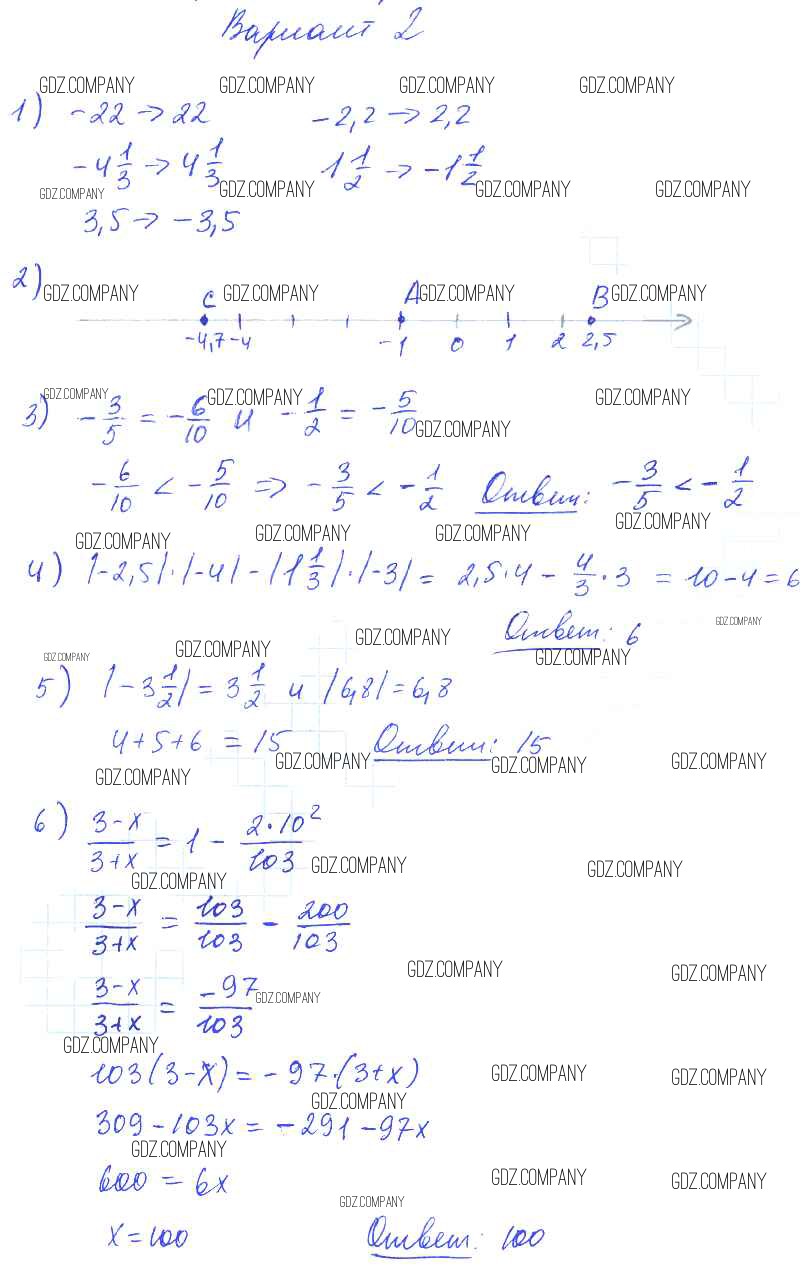 Вариант 2
GDZ.COMPANY GDZ.COMPANY GDZ.COMPANY GDZ.COMPANY
1) -22 → 22 -2,2 → 2,2
-4 1/3 → 4 1/3 1 1/2 → -1 1/2
GDZ.COMPANY GDZ.COMPANY GDZ.COMPANY GDZ.COMPANY
3,5 → -3,5
2) GDZ.COMPANY C GDZ.COMPANY A GDZ.COMPANY B GDZ.COMPANY
-4,7 -4 -1 0 1 2 2,5
GDZ.COMPANY GDZ.COMPANY GDZ.COMPANY
3) -3/5 = -6/10 и -1/2 = -5/10
GDZ.COMPANY
-6/10 < -5/10 => -3/5 < -1/2 Ответ: -3/5 < -1/2
GDZ.COMPANY GDZ.COMPANY GDZ.COMPANY GDZ.COMPANY
4) |-2,5|·|-4| - |1 1/3|·|-3| = 2,5·4 - 4/3·3 = 10-4=6
Ответ: 6
GDZ.COMPANY GDZ.COMPANY GDZ.COMPANY GDZ.COMPANY GDZ.COMPANY
5) |-3 1/2| = 3 1/2 и |6,8| = 6,8
4+5+6 = 15 Ответ: 15
GDZ.COMPANY GDZ.COMPANY GDZ.COMPANY GDZ.COMPANY
6) (3-x)/(3+x) = 1 - (2·10²)/103
GDZ.COMPANY GDZ.COMPANY GDZ.COMPANY
(3-x)/(3+x) = 103/103 - 200/103
GDZ.COMPANY GDZ.COMPANY
(3-x)/(3+x) = -97/103
GDZ.COMPANY
GDZ.COMPANY
103(3-x) = -97·(3+x)
GDZ.COMPANY GDZ.COMPANY
GDZ.COMPANY
309-103x = -291-97x
GDZ.COMPANY
600 = 6x
GDZ.COMPANY GDZ.COMPANY
GDZ.COMPANY
x=100 Ответ: 100